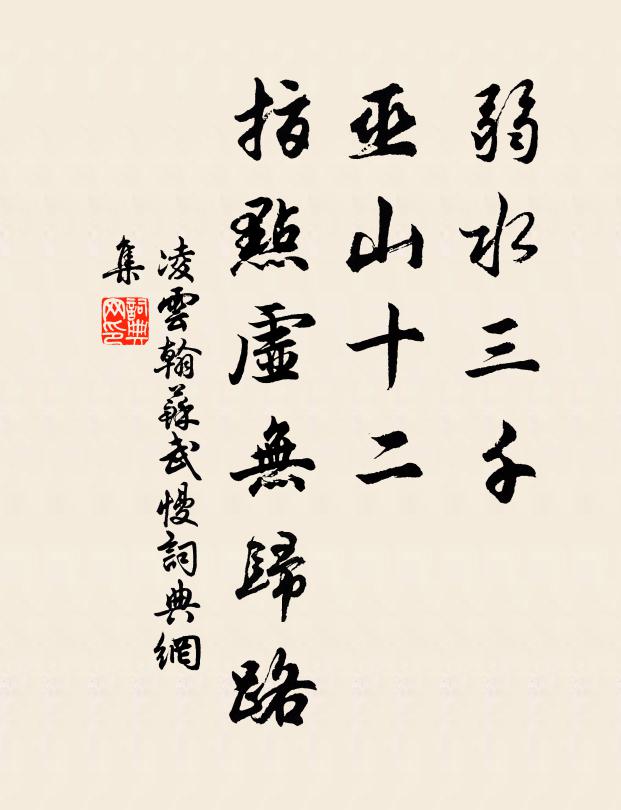 弱水三千
巫山十二
指點虛無歸路
凌雲翰蘇武慢詞典網
集
詞典
网印